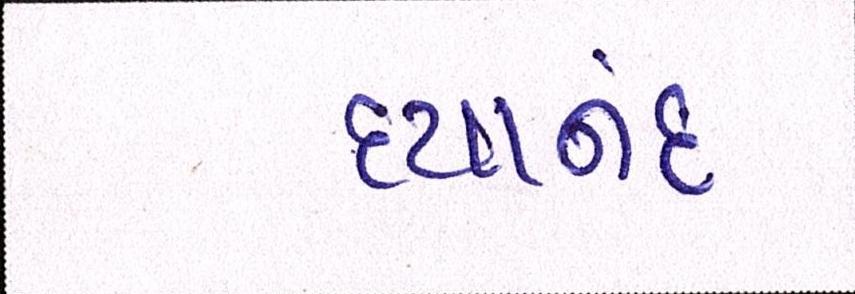 દયાનંદ